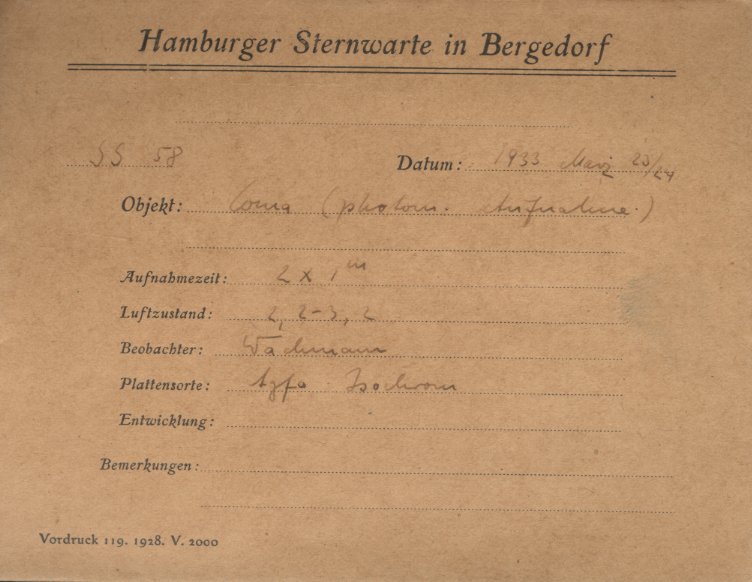 Hamburger Sternwarte in Bergedorf
SS 58 Datum: 1933 März 23/24
Objekt: Coma (photom. Aufnahme.)
Aufnahmezeit: 2 x 1m
Luftzustand: 2, 2-3, 2
Beobachter: Wachmann
Plattensorte: Agfa Isochrom
Entwicklung:
Bemerkungen:
Vordruck 119. 1928. V. 2000